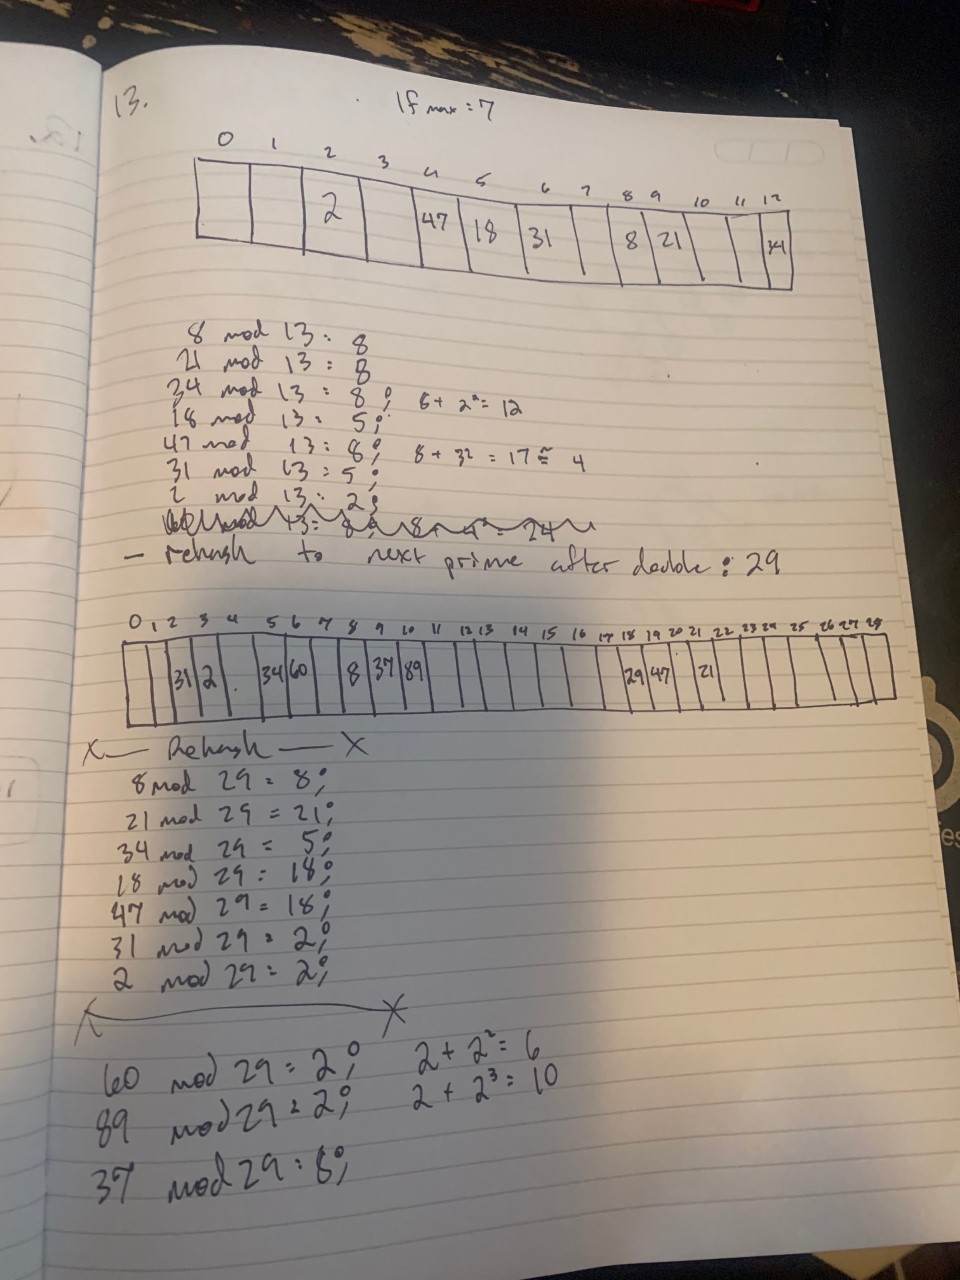 13.
lf max = 7
0 1 2 3 4 5 6 7 8 9 10 11 12
2 47 18 31 8 21 34
8 mod 13 = 8
21 mod 13 = 8
34 mod 13 = 8; 8 + 2² = 12
18 mod 13 = 5;
47 mod 13 = 8; 8 + 3² = 17 ≅ 4
31 mod 13 = 5;
2 mod 13 = 2;
mod 13 = 8; 8 + 4² = 24
- rehash to next prime after double : 29
0 1 2 3 4 5 6 7 8 9 10 11 12 13 14 15 16 17 18 19 20 21 22 23 24 25 26 27 28
31 2 34 60 8 37 89 29 47 21
X — Rehash — X
8 mod 29 = 8;
21 mod 29 = 21;
34 mod 29 = 5;
18 mod 29 = 18;
47 mod 29 = 18;
31 mod 29 = 2;
2 mod 29 = 2;
X X
60 mod 29 = 2; 2 + 2² = 6
89 mod 29 = 2; 2 + 2³ = 10
37 mod 29 = 8;